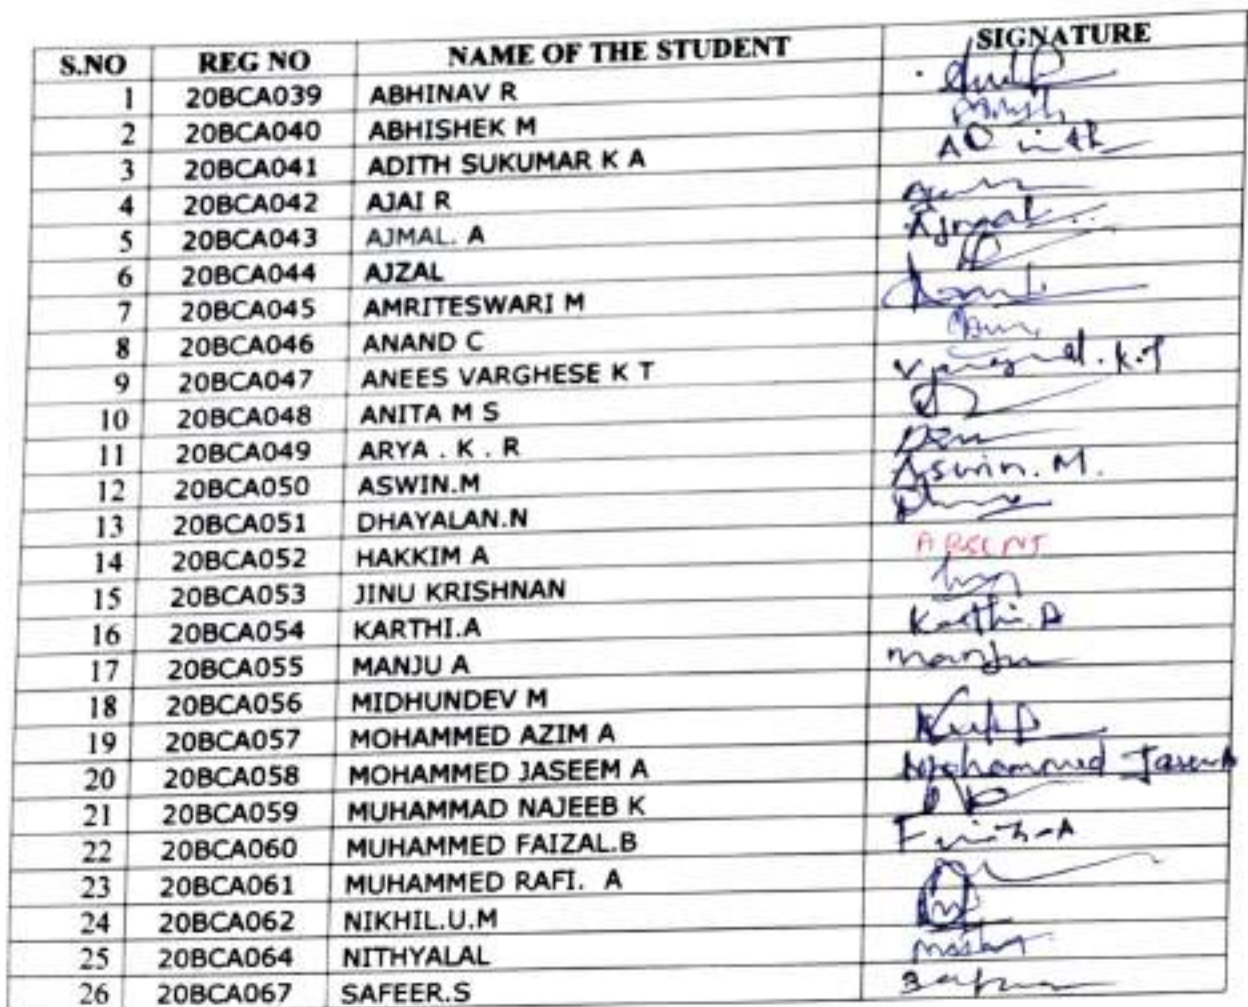 S.NO REG NO NAME OF THE STUDENT SIGNATURE
1 20BCA039 ABHINAV R
2 20BCA040 ABHISHEK M
3 20BCA041 ADITH SUKUMAR K A
4 20BCA042 AJAI R
5 20BCA043 AJMAL. A Ajmal
6 20BCA044 AJZAL
7 20BCA045 AMRITESWARI M
8 20BCA046 ANAND C
9 20BCA047 ANEES VARGHESE K T
10 20BCA048 ANITA M S
11 20BCA049 ARYA . K . R
12 20BCA050 ASWIN.M Aswin. M.
13 20BCA051 DHAYALAN.N
14 20BCA052 HAKKIM A ABSENT
15 20BCA053 JINU KRISHNAN
16 20BCA054 KARTHI.A Karthi. A
17 20BCA055 MANJU A Manju
18 20BCA056 MIDHUNDEV M
19 20BCA057 MOHAMMED AZIM A
20 20BCA058 MOHAMMED JASEEM A Mohammed Jaseem
21 20BCA059 MUHAMMAD NAJEEB K
22 20BCA060 MUHAMMED FAIZAL.B
23 20BCA061 MUHAMMED RAFI. A
24 20BCA062 NIKHIL.U.M
25 20BCA064 NITHYALAL
26 20BCA067 SAFEER.S